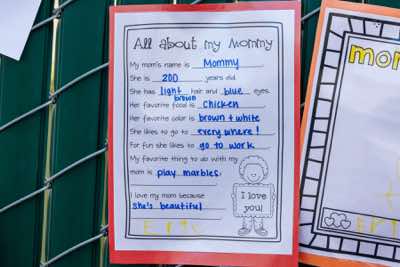 All about my Mommy
My mom's name is Mommy
She is 200 years old.
She has light brown hair and blue eyes.
Her favorite food is chicken
Her favorite color is brown + white
She likes to go to everywhere!
For fun she likes to go to work
My favorite thing to do with my
mom is play marbles.
I love my mom because
she's beautiful
I love
you!
mom